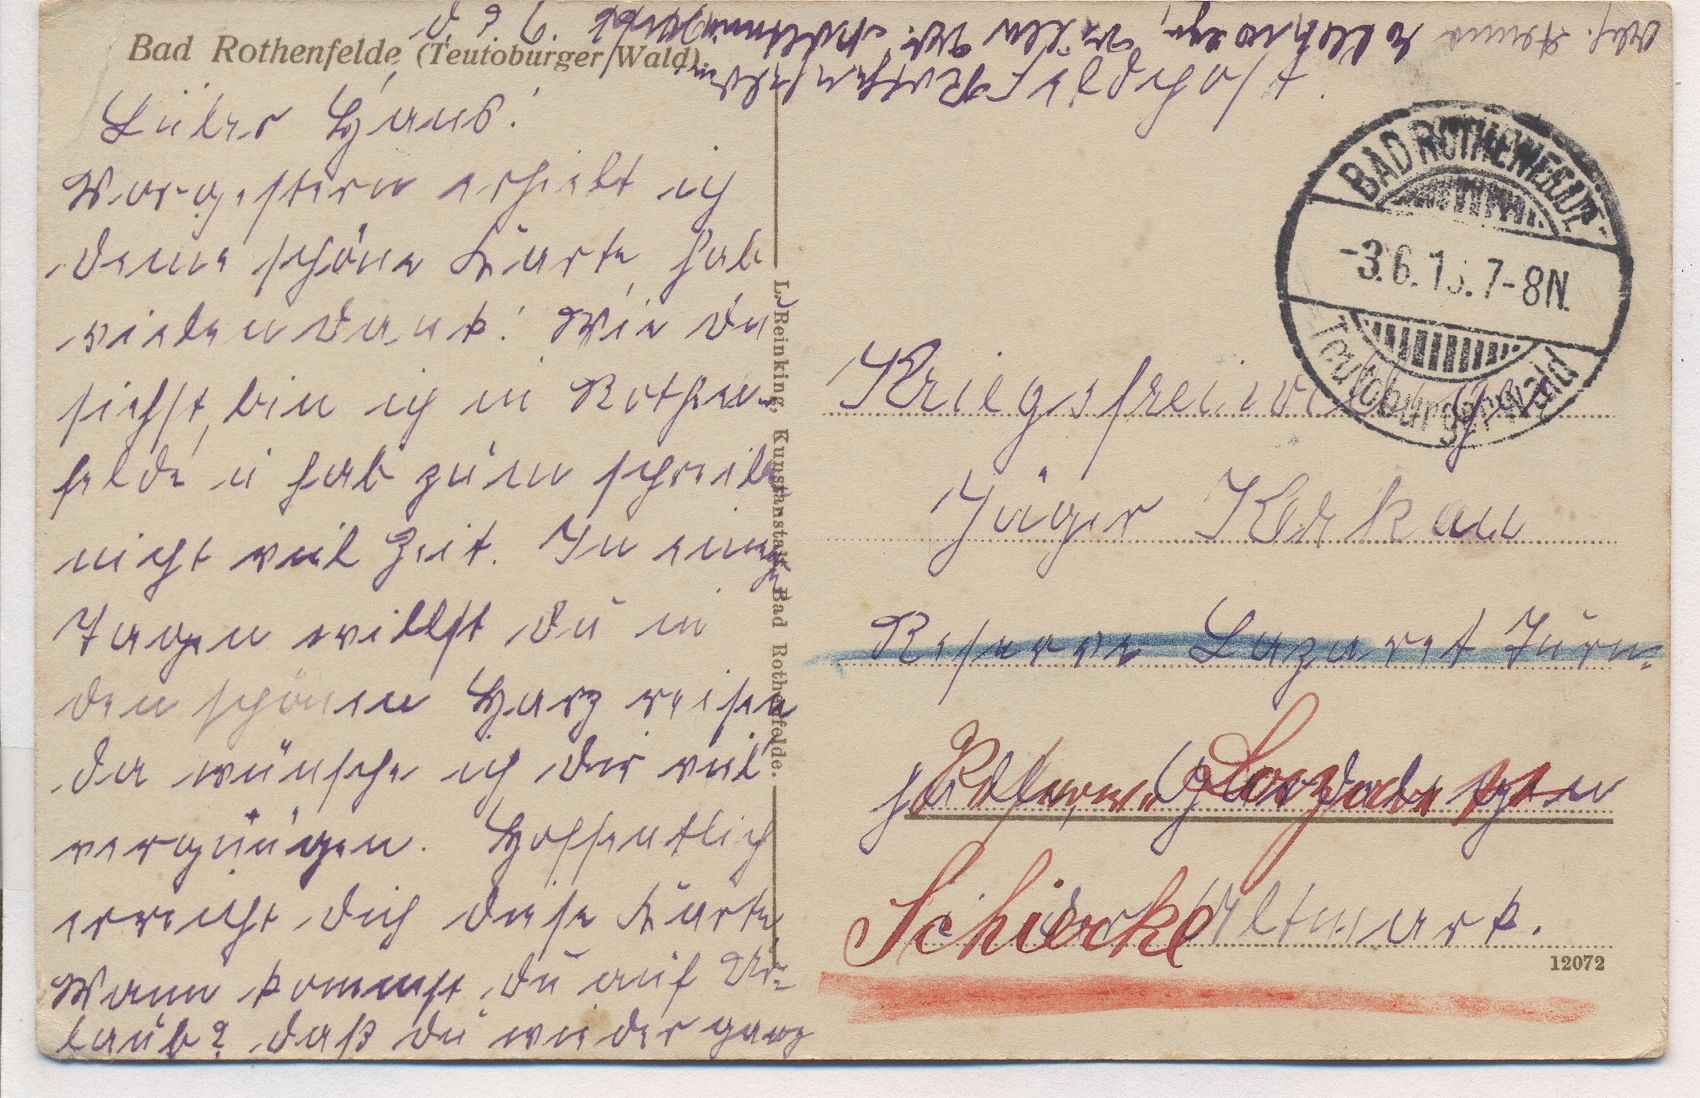 Bad Rothenfelde (Teutoburger Wald).
Lieber Hans!
Vorgestern erhielt ich
deine schöne Karte, hab
vielen Dank! Wie du
siehst, bin ich in Rothen-
felde u hab zum schreib
nicht viel Zeit. In einig
Tagen willst du in
den schönen Harz reisen
da wünsche ich dir viel
vergnügen. Hoffentlich
erreicht dich diese Karte
Wann kommst du auf Ur-
laub? daß du wieder ganz
L. Reinking, Kunstanstalt, Bad Rothenfelde.
BAD ROTHENFELDE
-3.6.15. 7-8N.
Teutoburger Wald
Kriegsfreiwilliger
Jäger Kerkau
Reserve Lazaret Turn-
halle Gardelegen
Schierke
Altmark.
12072